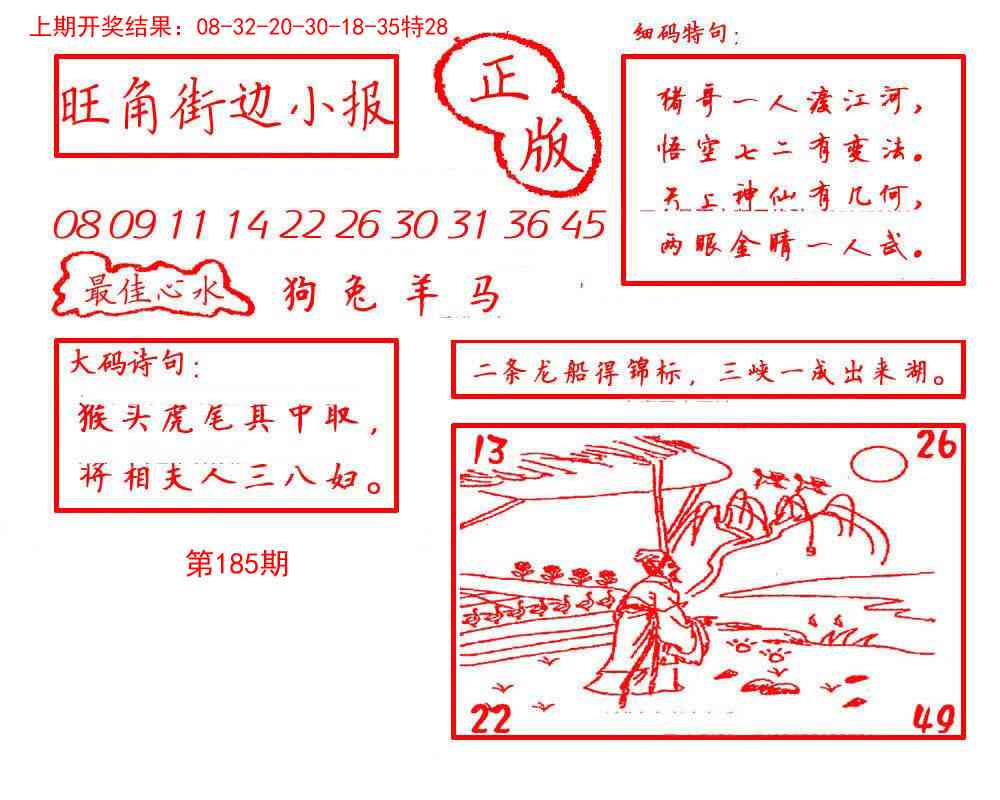 上期开奖结果：08-32-20-30-18-35特28
旺角街边小报
正版
细码特句：
猪哥一人渡江河，
悟空七二有变法。
天上神仙有几何，
两眼金睛一人武。
08 09 11 14 22 26 30 31 36 45
最佳心水
狗兔羊马
大码诗句：
猴头虎尾其中取，
将相夫人三八妇。
二条龙船得锦标，三峡一成出来湖。
第185期
13
26
22
49